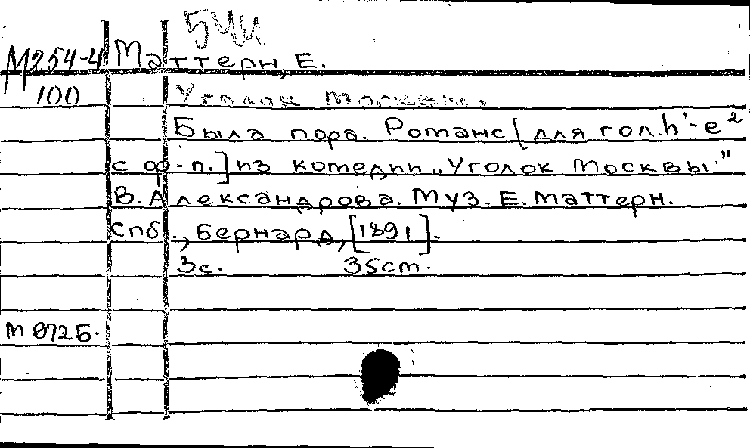 54и
М254-4 Маттерн, Е.
100 Уголок Москвы.
Была пора. Романс [для гол. h'-e²
с ф-п.] из комедии „Уголок Москвы"
В. Александрова. Муз. Е. Маттерн.
Спб., Бернард, [1891].
3с. 35cm.
М 972Б.